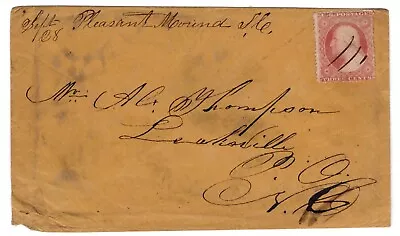 Sept Pleasant Mound S.C.
28
U.S. POSTAGE
THREE CENTS
Mr. A C. Thompson
Leaksville
P. O.
N. C.